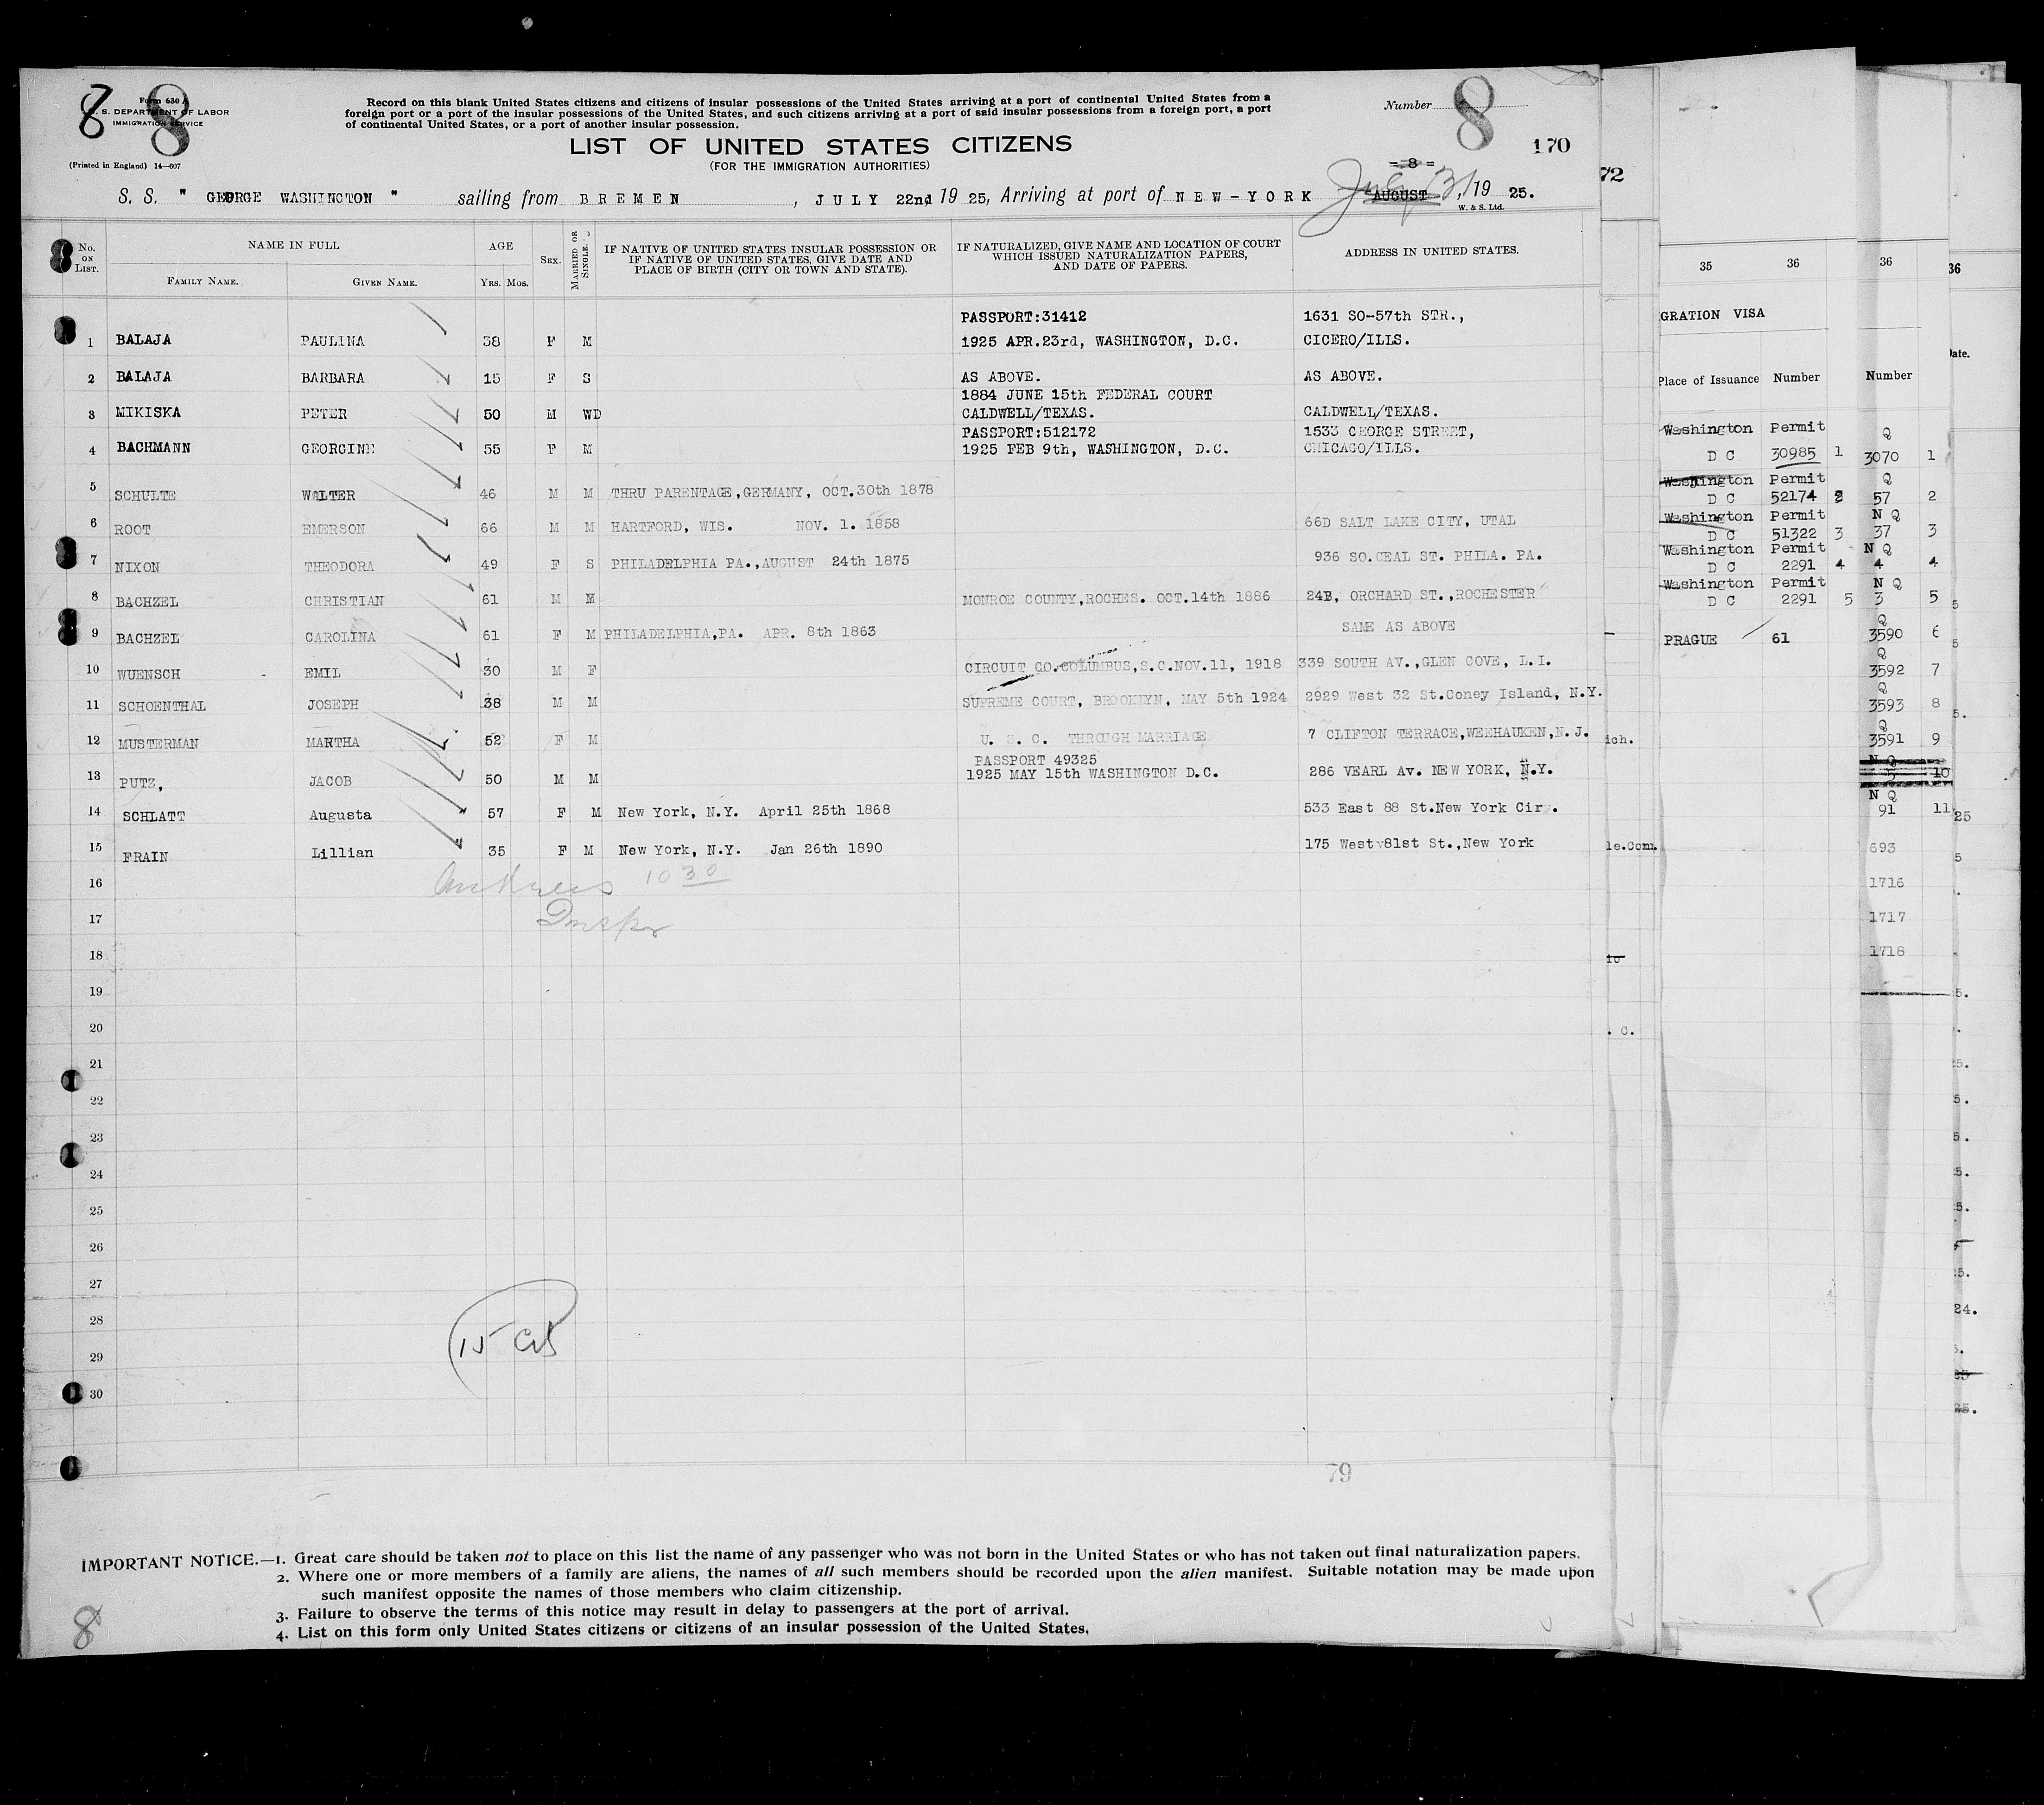 8 8
Form 630 A
U. S. DEPARTMENT OF LABOR
IMMIGRATION SERVICE
(Printed in England) 14—607
Record on this blank United States citizens and citizens of insular possessions of the United States arriving at a port of continental United States from a
foreign port or a port of the insular possessions of the United States, and such citizens arriving at a port of said insular possessions from a foreign port, a port
of continental United States, or a port of another insular possession.
LIST OF UNITED STATES CITIZENS
(FOR THE IMMIGRATION AUTHORITIES)
Number 8
170
= 8 =
S. S. " GEORGE WASHINGTON " sailing from BREMEN, JULY 22nd 1925, Arriving at port of NEW-YORK AUGUST July 31, 1925.
W. & S. Ltd.
No. ON LIST. NAME IN FULL AGE SEX. MARRIED OR SINGLE. IF NATIVE OF UNITED STATES INSULAR POSSESSION OR IF NATIVE OF UNITED STATES, GIVE DATE AND PLACE OF BIRTH (CITY OR TOWN AND STATE). IF NATURALIZED, GIVE NAME AND LOCATION OF COURT WHICH ISSUED NATURALIZATION PAPERS, AND DATE OF PAPERS. ADDRESS IN UNITED STATES.
FAMILY NAME. GIVEN NAME. YRS. MOS.
PASSPORT:31412 1631 SO-57th STR.,
1 BALAJA PAULINA 38 F M 1925 APR.23rd, WASHINGTON, D.C. CICERO/ILLS.
2 BALAJA BARBARA 15 F S AS ABOVE. AS ABOVE.
1884 JUNE 15th FEDERAL COURT
3 MIKISKA PETER 50 M WD CALDWELL/TEXAS. CALDWELL/TEXAS.
PASSPORT:512172 1533 GEORGE STREET,
4 BACHMANN GEORGINE 55 F M 1925 FEB 9th, WASHINGTON, D.C. CHICAGO/ILLS.
5 SCHULTE WOLTER 46 M M THRU PARENTAGE,GERMANY, OCT.30th 1878
6 ROOT EMERSON 66 M M HARTFORD, WIS. NOV. 1. 1858 66D SALT LAKE CITY, UTAL
7 NIXON THEODORA 49 F S PHILADELPHIA PA.,AUGUST 24th 1875 936 SO.CEAL ST. PHILA. PA.
8 BACHZEL CHRISTIAN 61 M M MONROE COUNTY,ROCHES. OCT.14th 1886 24B, ORCHARD ST.,ROCHESTER
9 BACHZEL CAROLINA 61 F M PHILADELPHIA,PA. APR. 8th 1863 SAME AS ABOVE
10 WUENSCH EMIL 30 M F CIRCUIT CO.COLUMBUS,S.C.NOV.11, 1918 339 SOUTH AV.,GLEN COVE, L.I.
11 SCHOENTHAL JOSEPH 38 M M SUPREME COURT, BROOKLYN, MAY 5th 1924 2929 West 32 St.Coney Island, N.Y.
12 MUSTERMAN MARTHA 52 F M U. S. C. THROUGH MARRIAGE 7 CLIFTON TERRACE,WEEHAUKEN,N.J.
PASSPORT 49325
13 PUTZ, JACOB 50 M M 1925 MAY 15th WASHINGTON D.C. 286 VEARL Av. NEW YORK, N.Y.
14 SCHLATT Augusta 57 F M New York, N.Y. April 25th 1868 533 East 88 St.New York Cir.
15 FRAIN Lillian 35 F M New York, N.Y. Jan 26th 1890 175 West 81st St.,New York
16 1030
17
18
19
20
21
22
23
24
25
26
27
28
29
30
15
79
IMPORTANT NOTICE.—1. Great care should be taken not to place on this list the name of any passenger who was not born in the United States or who has not taken out final naturalization papers.
2. Where one or more members of a family are aliens, the names of all such members should be recorded upon the alien manifest. Suitable notation may be made upon
such manifest opposite the names of those members who claim citizenship.
3. Failure to observe the terms of this notice may result in delay to passengers at the port of arrival.
4. List on this form only United States citizens or citizens of an insular possession of the United States.
8
72
ich.
le.Conn.
. C.
35 36
GRATION VISA
Place of Issuance Number
Washington Permit
D C 30985 1
Washington Permit
D C 52174 2
Washington Permit
D C 51322 3
Washington Permit
D C 2291 4
Washington Permit
D C 2291 5
PRAGUE 61
36
Number
Q
3070 1
Q
57 2
N Q
37 3
N Q
4 4
N Q
3 5
Q
3590 6
Q
3592 7
Q
3593 8
Q
3591 9
N Q
5 10
N Q
91 11
693
1716
1717
1718
36
Date.
5
5
5.
25
5
5.
25.
5.
5.
25.
25.
25.
24.
25.